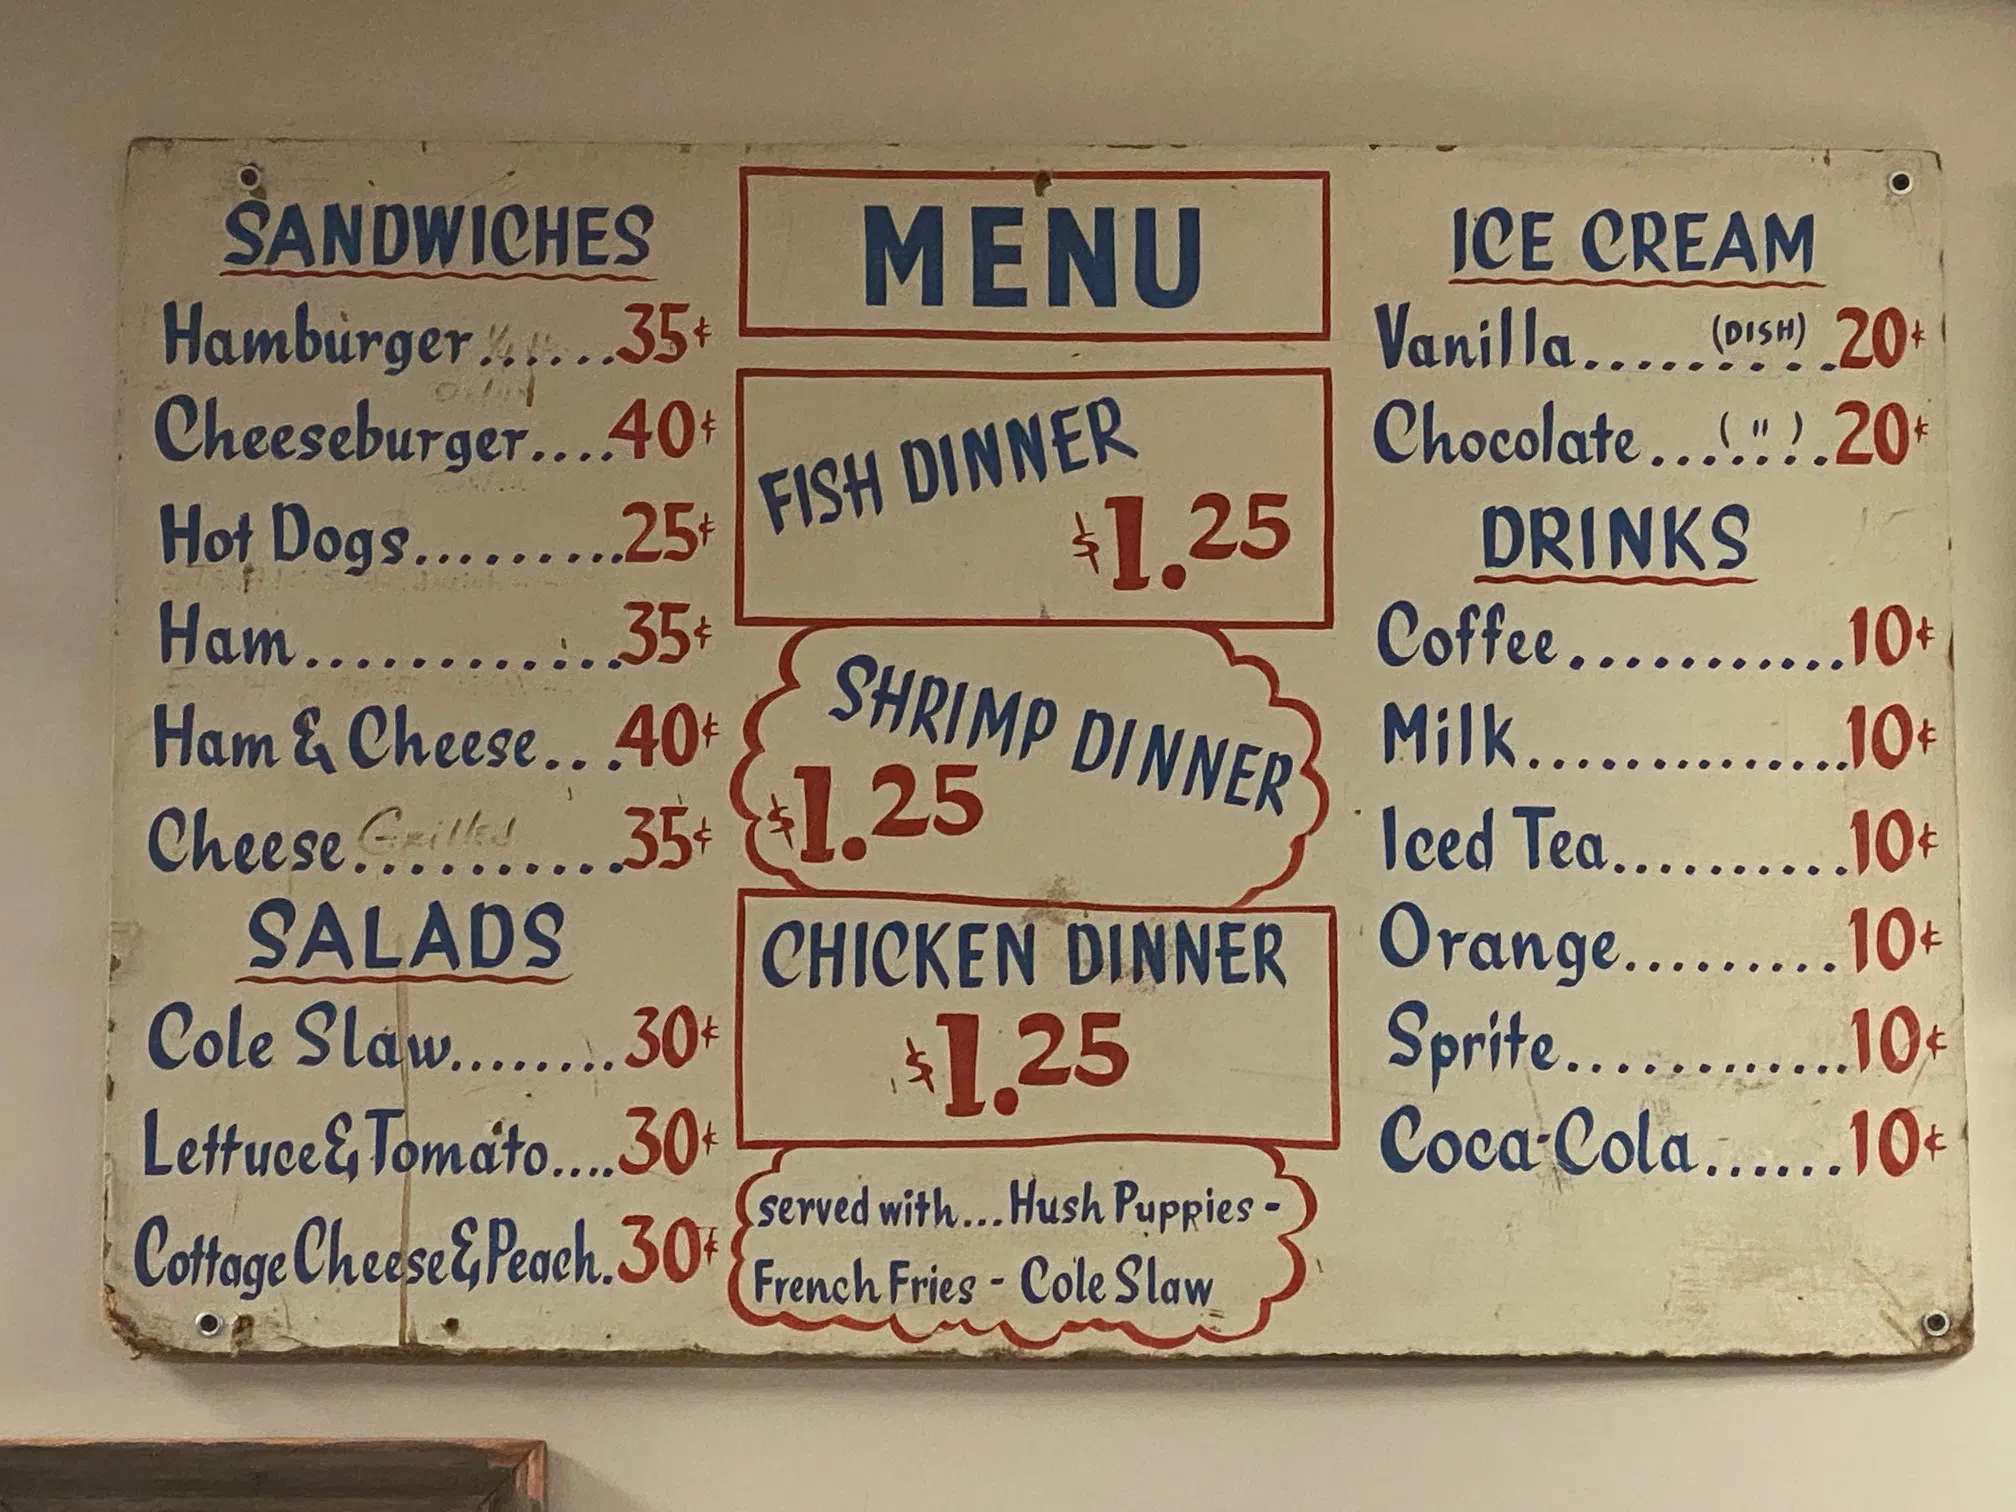 SANDWICHES
Hamburger......35¢
Cheeseburger....40¢
Hot Dogs.........25¢
Ham.............35¢
Ham & Cheese...40¢
Cheese Grilled..........35¢
SALADS
Cole Slaw........30¢
Lettuce & Tomato....30¢
Cottage Cheese & Peach.30¢
MENU
FISH DINNER
$1.25
SHRIMP DINNER
$1.25
CHICKEN DINNER
$1.25
served with...Hush Puppies -
French Fries - Cole Slaw
ICE CREAM
Vanilla.........(DISH) 20¢
Chocolate...(..".).20¢
DRINKS
Coffee............10¢
Milk..............10¢
Iced Tea..........10¢
Orange.........10¢
Sprite............10¢
Coca-Cola......10¢